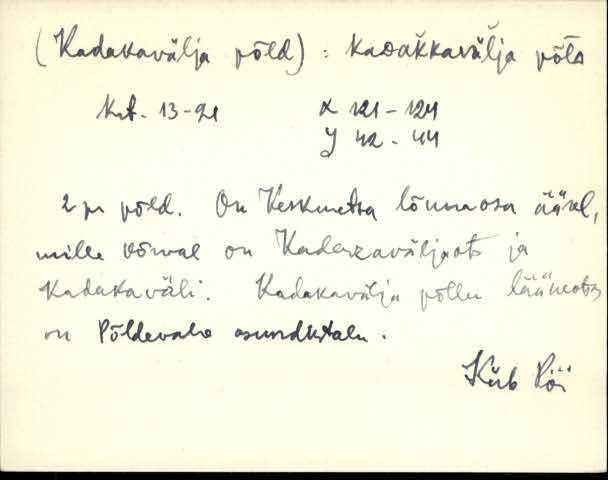 (Kadakavälja põld) : kaᴅak̆kaväl̆ja põlᴅ
Krt. 13-21 X 121-124
Y 42-44
2 pr põld. On Keskmetsa lõunaosa ääsel,
mille kõrval on Kadakaväljaots ja
Kadakaväli. Kadakavälja põllu lääneotsas
on Põldevahe asundustalu.
Küb Pöi